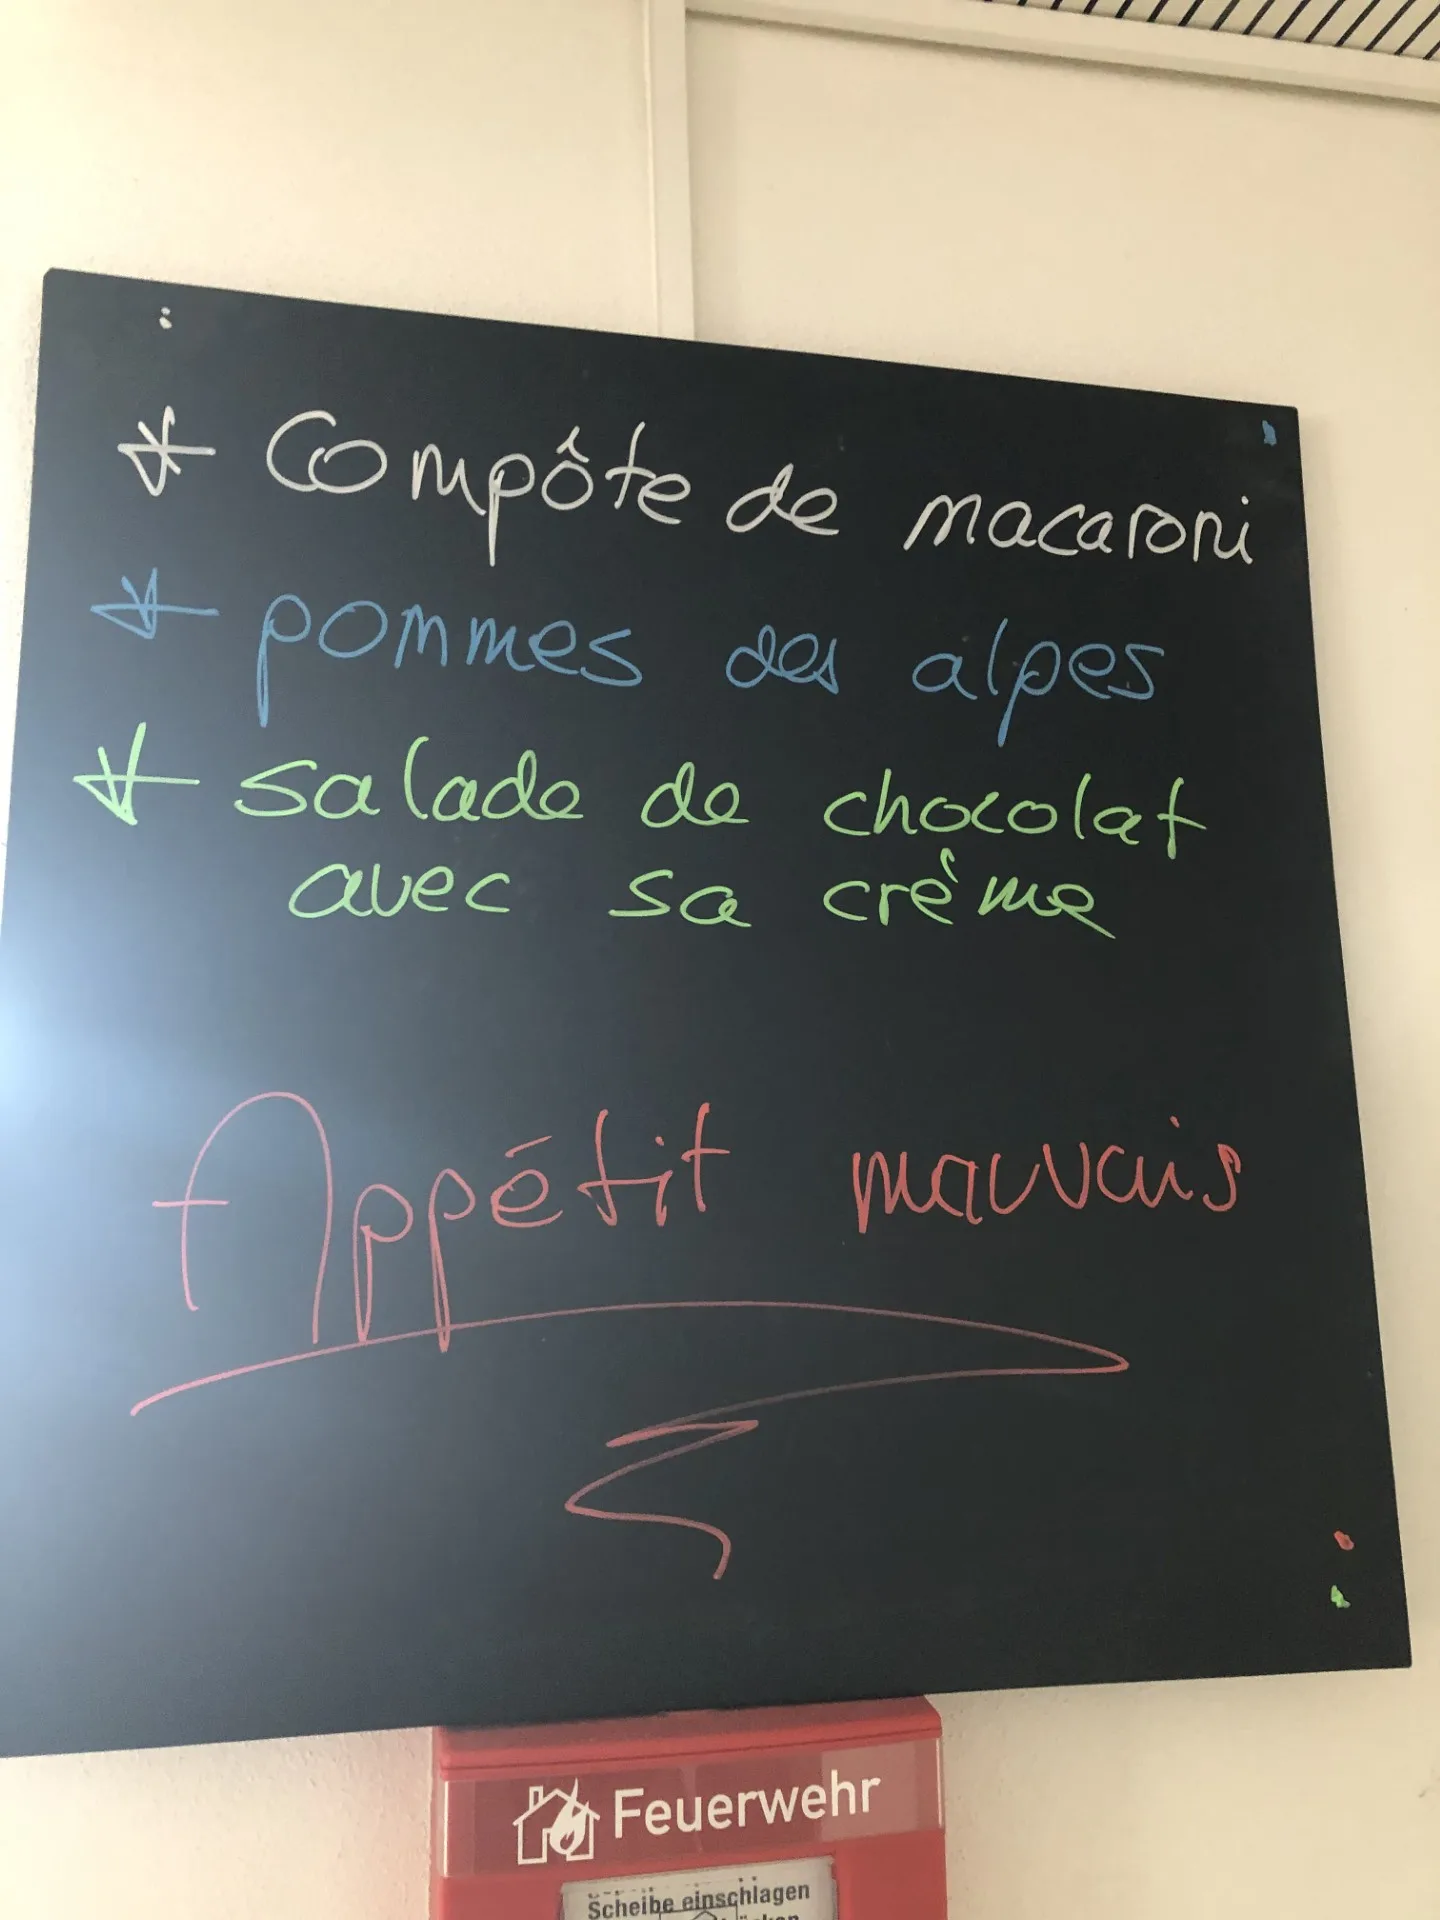 * Compôte de macaroni
* pommes des alpes
* salade de chocolat
avec sa crème
Appétit mauvais
Feuerwehr
Scheibe einschlagen